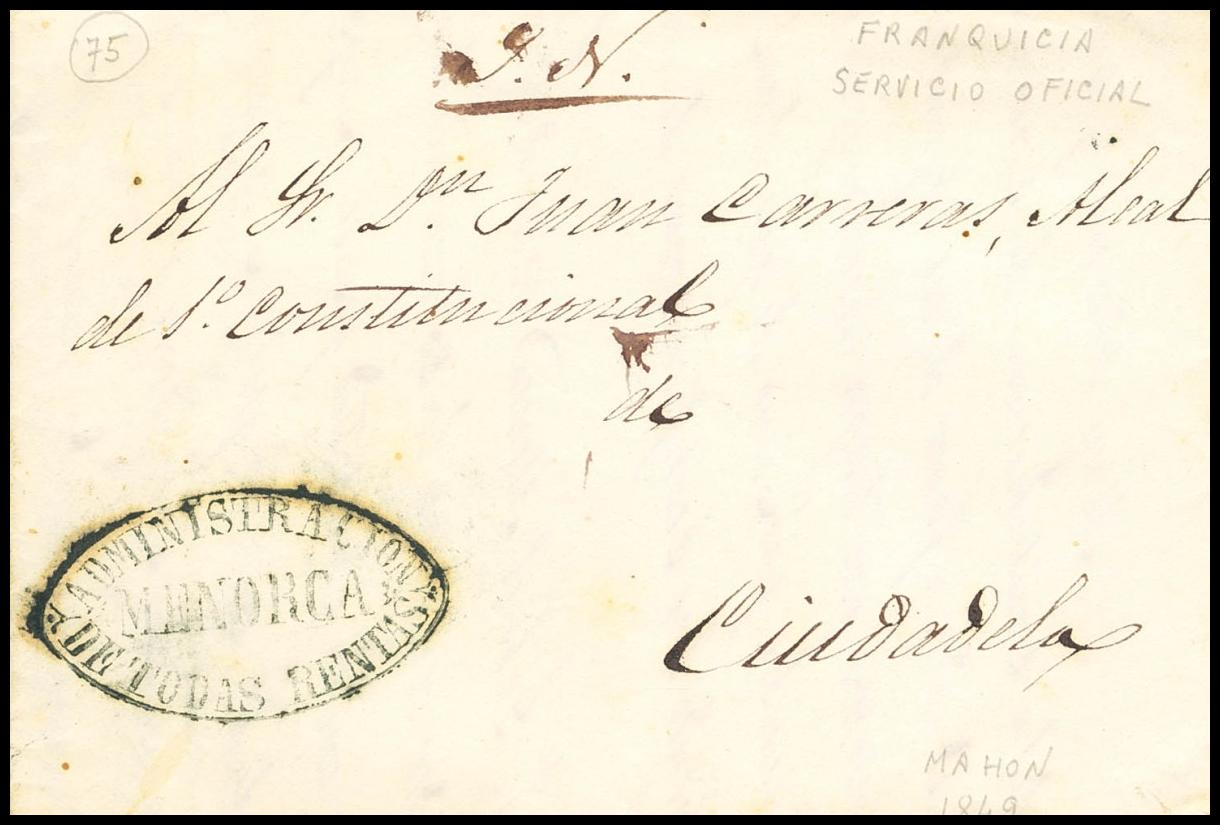 75
FRANQUICIA
SERVICIO OFICIAL
S. N.
Al Sr. Dn. Juan Carreras, Alcal
de 1º Constitucional
de
Ciudadela
ADMINISTRACION
MENORCA
DE TODAS RENTAS
MAHON
1849